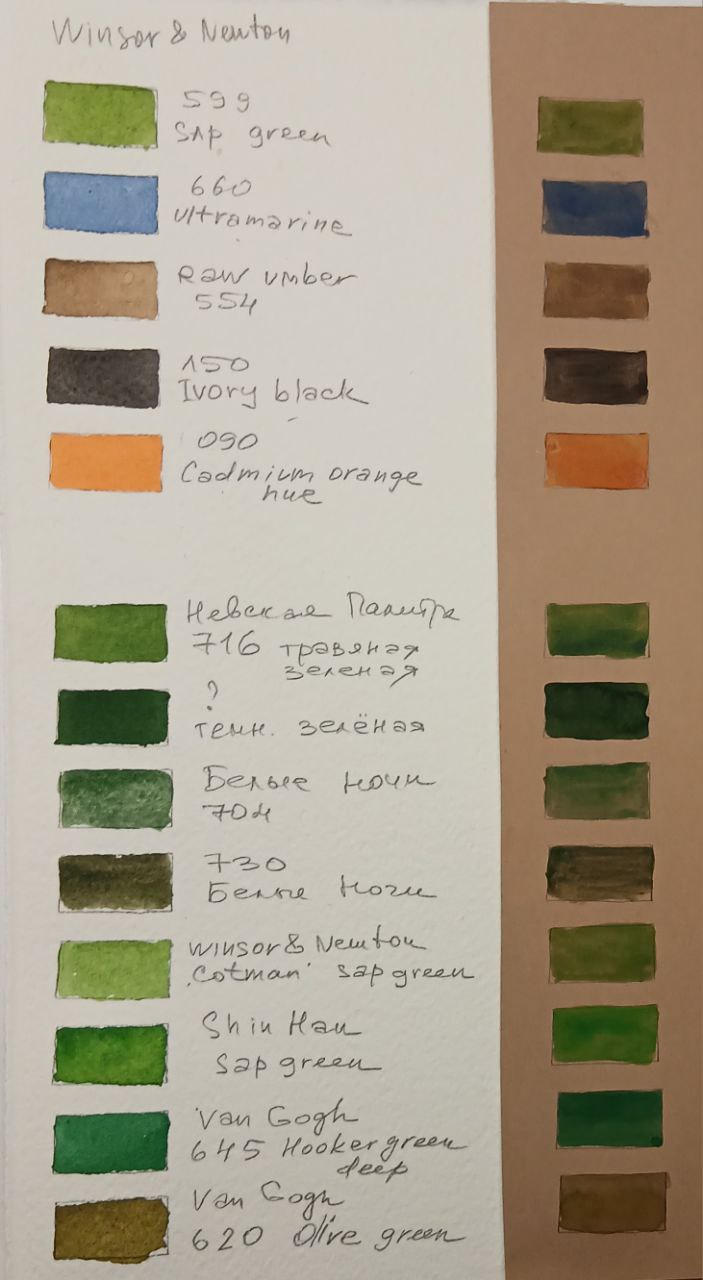 Winsor & Newton
599
Sap green
660
ultramarine
Raw umber
554
150
Ivory black
090
Cadmium orange
hue
Невская Палитра
716 травяная
зеленая
?
темн. зелёная
Белые ночи
704
730
Белые Ночи
Winsor & Newton
'Cotman' sap green
Shin Han
Sap green
Van Gogh
645 Hooker green
deep
Van Gogh
620 Olive green